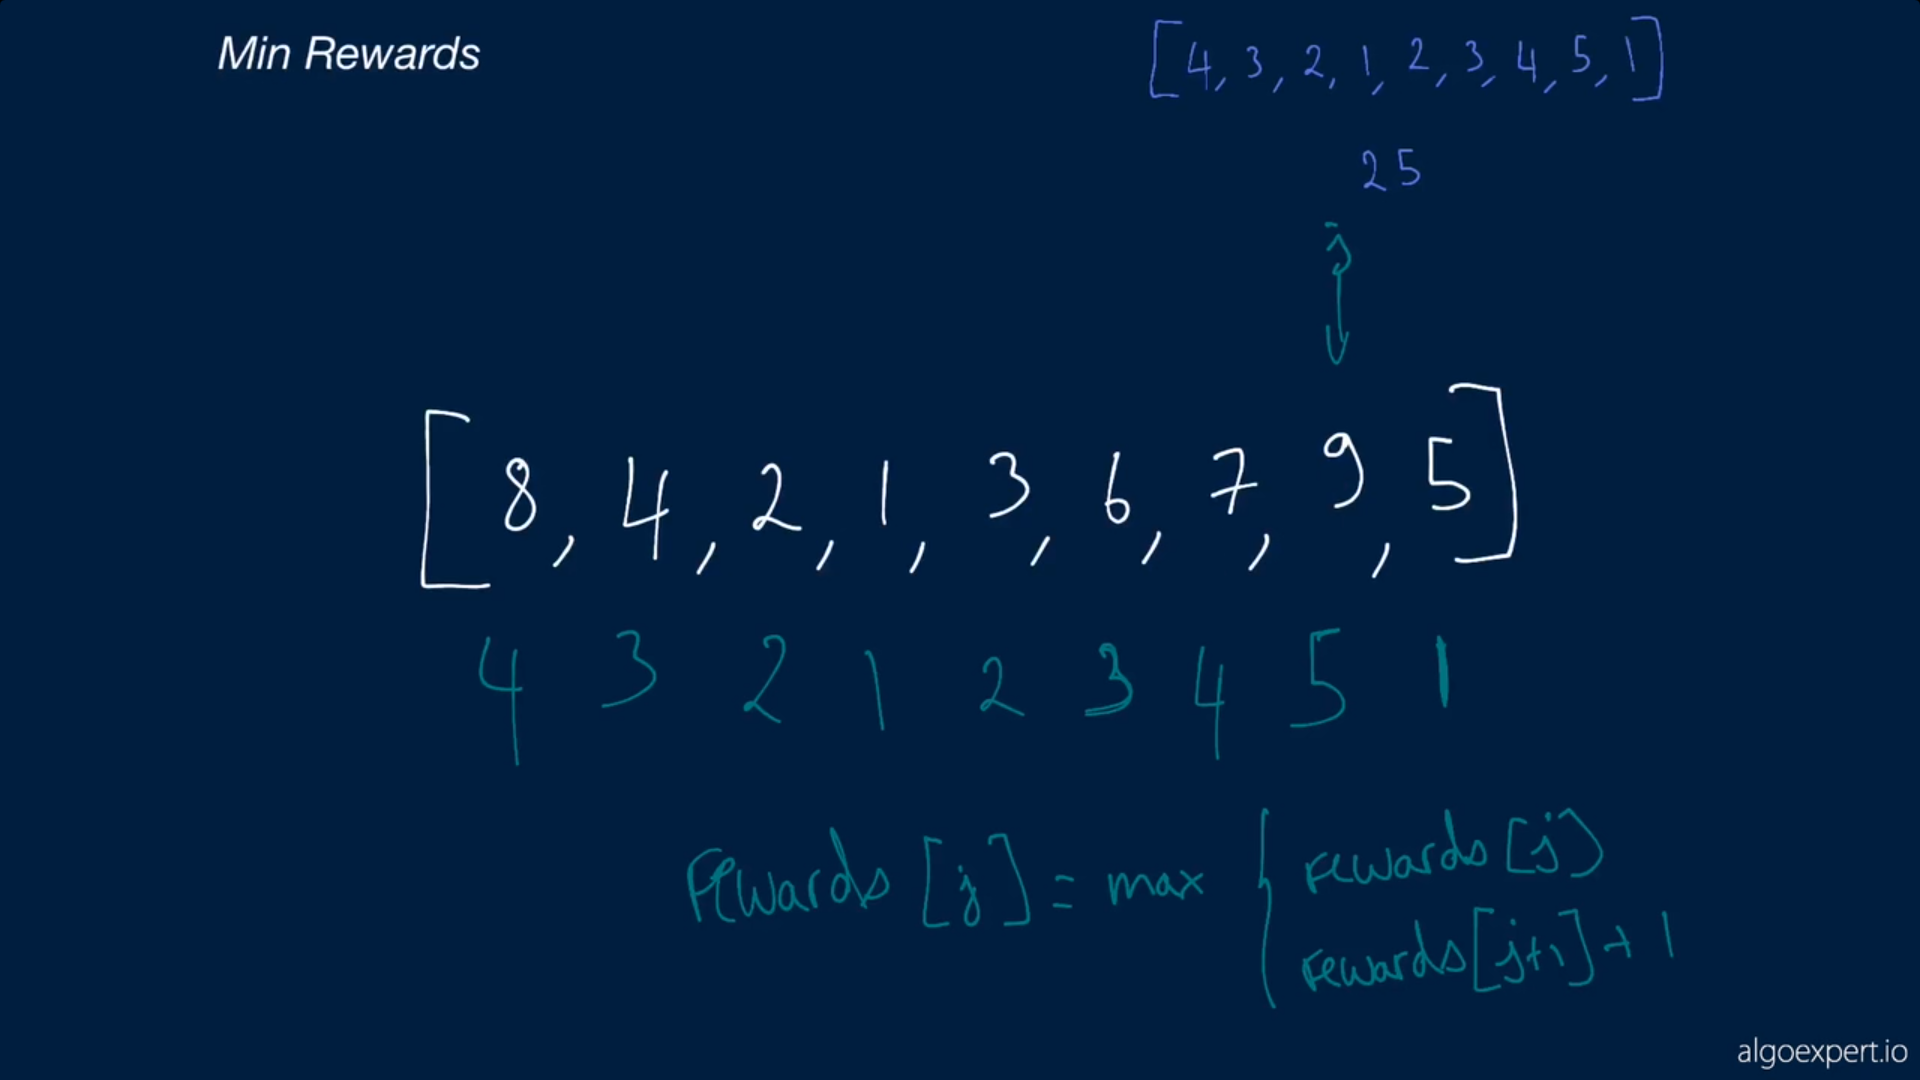 Min Rewards
[4, 3, 2, 1, 2, 3, 4, 5, 1]
25
j
[8, 4, 2, 1, 3, 6, 7, 9, 5]
4 3 2 1 2 3 4 5 1
rewards[j] = max { rewards[j]
rewards[j+1] + 1
algoexpert.io